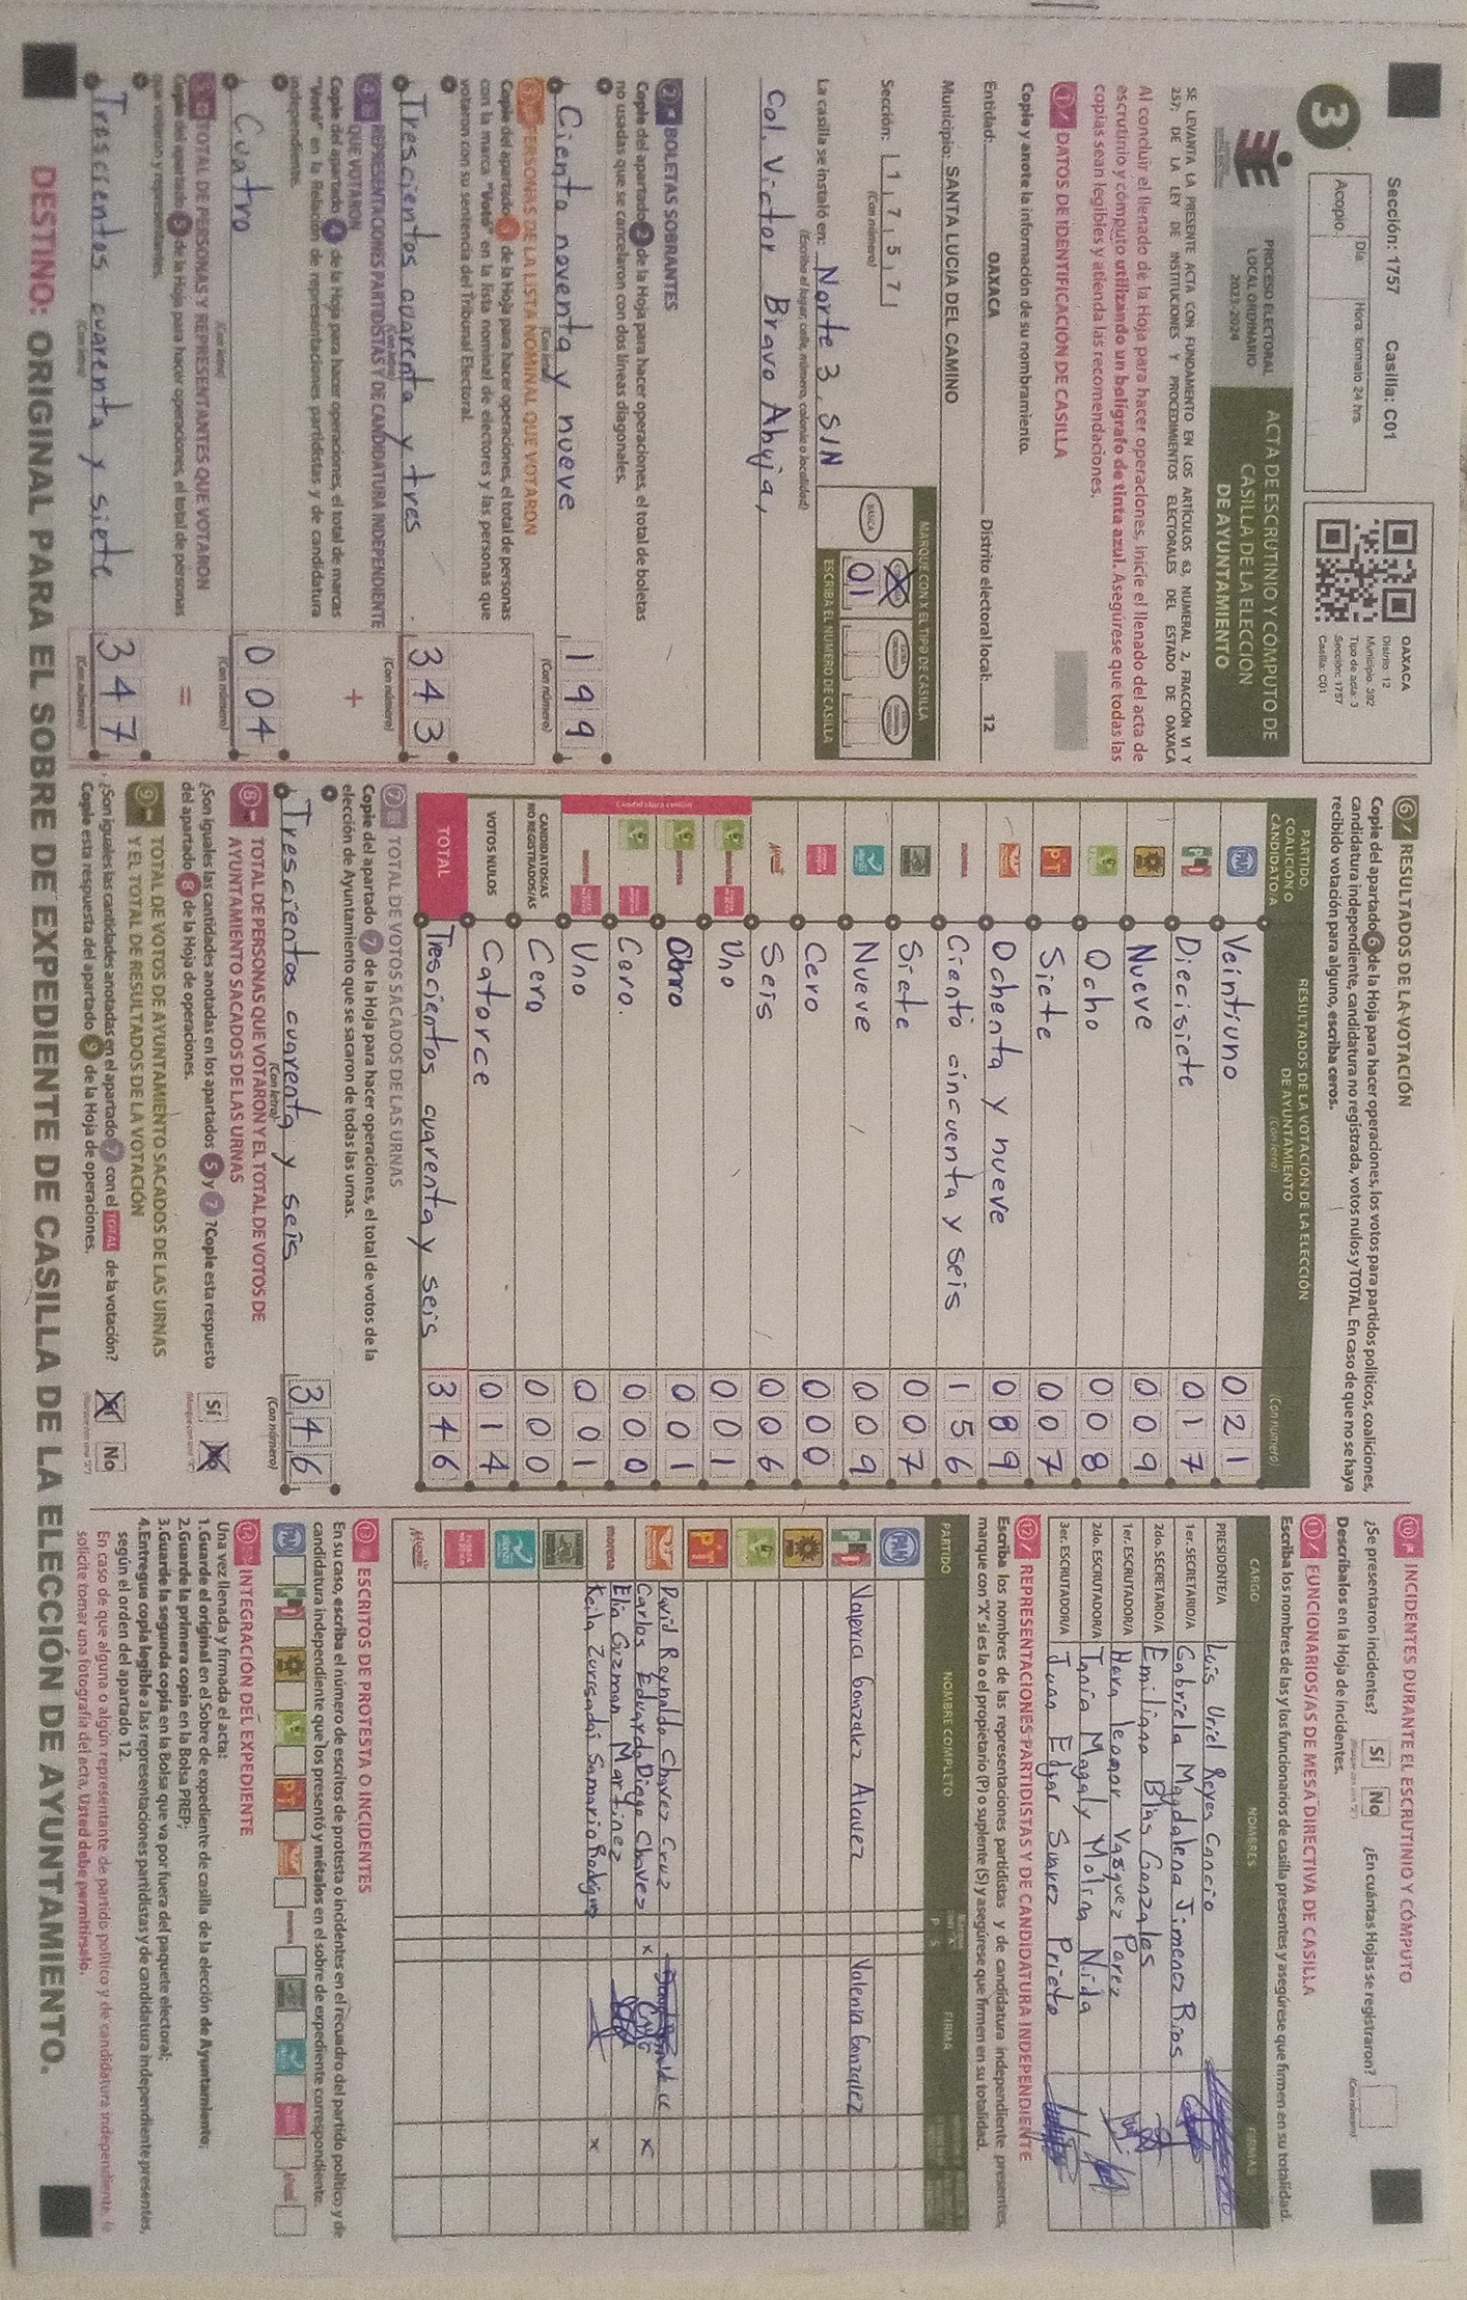 Sección: 1757 Casilla: C01
Día Hora: formato 24 hrs.
Acopio:
OAXACA
Distrito: 12
Municipio: 592
Tipo de acta: 3
Sección: 1757
Casilla: C01
3
PROCESO ELECTORAL
LOCAL ORDINARIO
2023-2024
ACTA DE ESCRUTINIO Y CÓMPUTO DE
CASILLA DE LA ELECCIÓN
DE AYUNTAMIENTO
SE LEVANTA LA PRESENTE ACTA CON FUNDAMENTO EN LOS ARTÍCULOS 63, NUMERAL 2, FRACCIÓN VI Y
257; DE LA LEY DE INSTITUCIONES Y PROCEDIMIENTOS ELECTORALES DEL ESTADO DE OAXACA
Al concluir el llenado de la Hoja para hacer operaciones, inicie el llenado del acta de
escrutinio y cómputo utilizando un bolígrafo de tinta azul. Asegúrese que todas las
copias sean legibles y atienda las recomendaciones.
1 DATOS DE IDENTIFICACIÓN DE CASILLA
Copie y anote la información de su nombramiento.
Entidad: OAXACA Distrito electoral local: 12
Municipio: SANTA LUCIA DEL CAMINO
Sección: 1 7 5 7
(Con número)
MARQUE CON X EL TIPO DE CASILLA
BÁSICA
01
ESCRIBA EL NÚMERO DE CASILLA
La casilla se instaló en: Norte 3, S/N
(Escriba el lugar, calle, número, colonia o localidad)
Col. Victor Bravo Ahuja,
2 BOLETAS SOBRANTES
Copie del apartado 2 de la Hoja para hacer operaciones, el total de boletas
no usadas que se cancelaron con dos líneas diagonales.
Ciento noventa y nueve 199
(Con letra) (Con número)
3 PERSONAS DE LA LISTA NOMINAL QUE VOTARON
Copie del apartado 3 de la Hoja para hacer operaciones, el total de personas
con la marca "Votó" en la lista nominal de electores y las personas que
votaron con su sentencia del Tribunal Electoral.
Trescientos cuarenta y tres 343
(Con letra) (Con número)
4 REPRESENTACIONES PARTIDISTAS Y DE CANDIDATURA INDEPENDIENTE
QUE VOTARON
Copie del apartado 4 de la Hoja para hacer operaciones, el total de marcas
"Votó" en la Relación de representaciones partidistas y de candidatura
independiente.
+
Cuatro 004
(Con letra) (Con número)
5 TOTAL DE PERSONAS Y REPRESENTANTES QUE VOTARON
Copie del apartado 5 de la Hoja para hacer operaciones, el total de personas
que votaron y representantes.
=
Trescientos cuarenta y siete 347
(Con letra) (Con número)
6 RESULTADOS DE LA VOTACIÓN
Copie del apartado 6 de la Hoja para hacer operaciones, los votos para partidos políticos, coaliciones,
candidatura independiente, candidatura no registrada, votos nulos y TOTAL. En caso de que no se haya
recibido votación para alguno, escriba ceros.
PARTIDO, COALICIÓN O CANDIDATO/A
RESULTADOS DE LA VOTACIÓN DE LA ELECCIÓN DE AYUNTAMIENTO
(Con letra) (Con número)
PAN Veintiuno 021
PRI Diecisiete 017
Nueve 009
Ocho 008
PT Siete 007
Ochenta y nueve 089
morena Ciento cincuenta y seis 156
Siete 007
Nueve 009
Cero 000
Seis 006
Candidatura común
Uno 001
001
Cero. 000
Uno 001
CANDIDATOS/AS NO REGISTRADOS/AS Cero 000
VOTOS NULOS Catorce 014
TOTAL Trescientos cuarenta y seis 346
7 TOTAL DE VOTOS SACADOS DE LAS URNAS
Copie del apartado 7 de la Hoja para hacer operaciones, el total de votos de la
elección de Ayuntamiento que se sacaron de todas las urnas.
Trescientos cuarenta y seis 346
(Con letra) (Con número)
8 TOTAL DE PERSONAS QUE VOTARON Y EL TOTAL DE VOTOS DE
AYUNTAMIENTO SACADOS DE LAS URNAS
¿Son iguales las cantidades anotadas en los apartados 5 y 7 ? Copie esta respuesta
del apartado 8 de la Hoja de operaciones.
Sí No
9 TOTAL DE VOTOS DE AYUNTAMIENTO SACADOS DE LAS URNAS
Y EL TOTAL DE RESULTADOS DE LA VOTACIÓN
¿Son iguales las cantidades anotadas en el apartado 7 con el TOTAL de la votación?
Copie esta respuesta del apartado 9 de la Hoja de operaciones.
Sí No
10 INCIDENTES DURANTE EL ESCRUTINIO Y CÓMPUTO
¿Se presentaron incidentes? Sí No ¿En cuántas Hojas se registraron?
(Con número)
Descríbalos en la Hoja de incidentes.
11 FUNCIONARIOS/AS DE MESA DIRECTIVA DE CASILLA
Escriba los nombres de las y los funcionarios de casilla presentes y asegúrese que firmen en su totalidad.
CARGO NOMBRES FIRMAS
PRESIDENTE/A Luis Uriel Reyes Cancio
1er. SECRETARIO/A Gabriela Magdalena Jimenez Rios
2do. SECRETARIO/A Emiliano Blas Gonzales
1er. ESCRUTADOR/A Hera leonor Vasquez Perez
2do. ESCRUTADOR/A Tania Magaly Molina Nida
3er. ESCRUTADOR/A Juan Edgar Suarez Prieto
12 REPRESENTACIONES PARTIDISTAS Y DE CANDIDATURA INDEPENDIENTE
Escriba los nombres de las representaciones partidistas y de candidatura independiente presentes,
marque con "X" si es la o el propietario (P) o suplente (S) y asegúrese que firmen en su totalidad.
PARTIDO NOMBRE COMPLETO P S FIRMA
PAN
PRI Valeria Gonzalez Alavez Valeria Gonzalez
PT
David Reynaldo Chavez Cruz
Carlos Eduardo Diego Chavez X X
morena Elia Guzman Martinez
Keila Zurisadai Samario Rodriguez X
13 ESCRITOS DE PROTESTA O INCIDENTES
En su caso, escriba el número de escritos de protesta o incidentes en el recuadro del partido político y de
candidatura independiente que los presentó y métalos en el sobre de expediente correspondiente.
14 INTEGRACIÓN DEL EXPEDIENTE
Una vez llenada y firmada el acta:
1. Guarde el original en el Sobre de expediente de casilla de la elección de Ayuntamiento;
2. Guarde la primera copia en la Bolsa PREP;
3. Guarde la segunda copia en la Bolsa que va por fuera del paquete electoral;
4. Entregue copia legible a las representaciones partidistas y de candidatura independiente presentes,
según el orden del apartado 12.
En caso de que alguna o algún representante de partido político y de candidatura independiente, le
solicite tomar una fotografía del acta, Usted debe permitírselo.
DESTINO: ORIGINAL PARA EL SOBRE DE EXPEDIENTE DE CASILLA DE LA ELECCIÓN DE AYUNTAMIENTO.